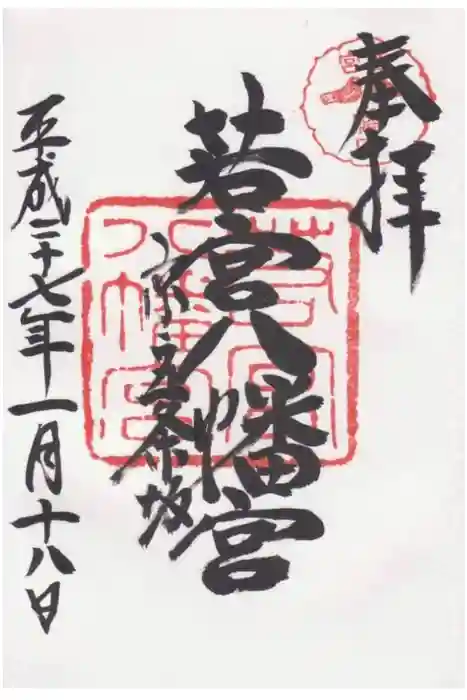 奉拝
若宮八幡宮
京五条坂
平成二十七年一月十八日
若宮
八幡宮